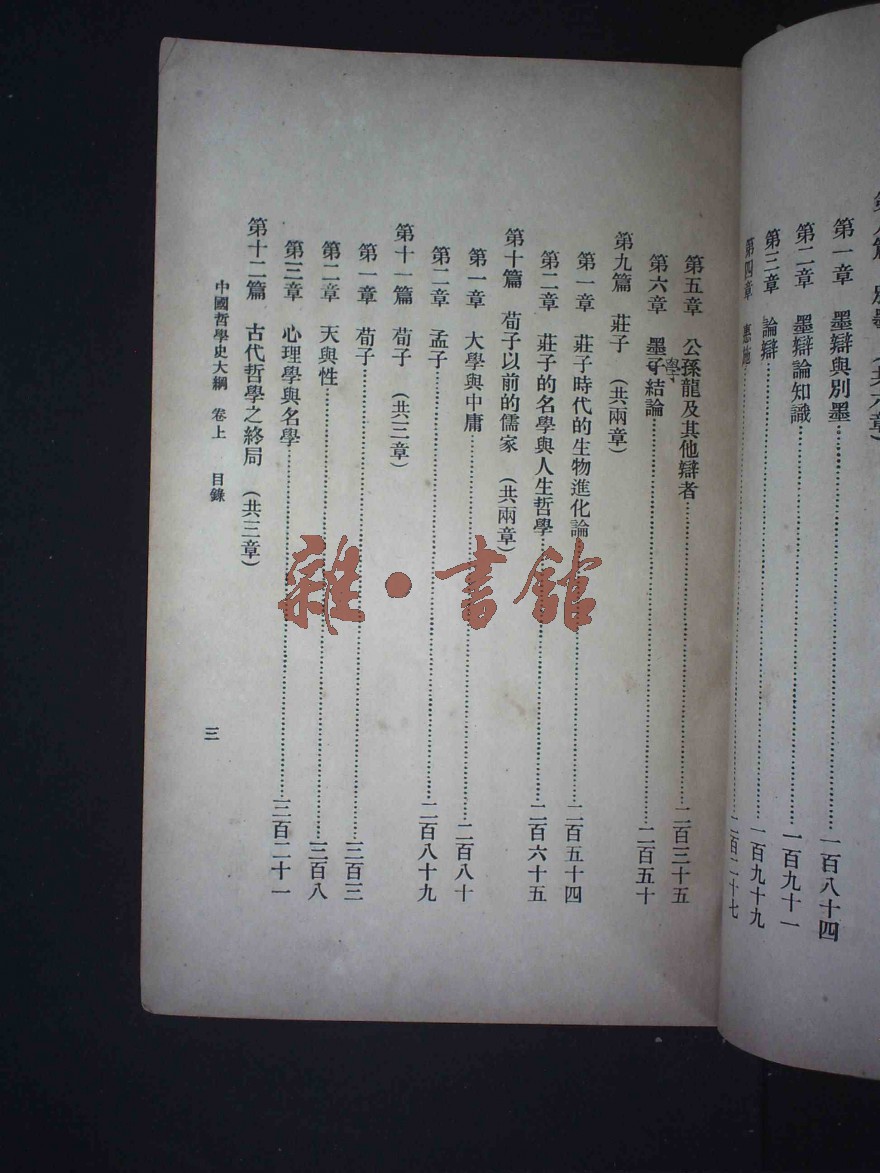 別墨 (共六章)
第一章 墨辯與別墨………一百八十四
第二章 墨辯論知識………一百九十一
第三章 論辯………一百九十九
第四章 惠施………二百二十七
第五章 公孫龍及其他辯者………二百三十五
第六章 墨子學結論………二百五十
第九篇 莊子 (共兩章)
第一章 莊子時代的生物進化論………二百五十四
第二章 莊子的名學與人生哲學………二百六十五
第十篇 荀子以前的儒家 (共兩章)
第一章 大學與中庸………二百八十
第二章 孟子………二百八十九
第十一篇 荀子 (共三章)
第一章 荀子………三百三
第二章 天與性………三百八
第三章 心理學與名學………三百二十一
第十二篇 古代哲學之終局 (共三章)
中國哲學史大綱 卷上 目錄
三
雜·書館